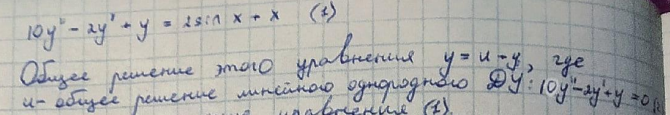 10y" - 2y' + y = 2sin x + x (1)
Общее решение этого уравнения y = u - y, где
u - общее решение линейного однородного ДУ: 10y" - 2y' + y = 0
уравнения (1).